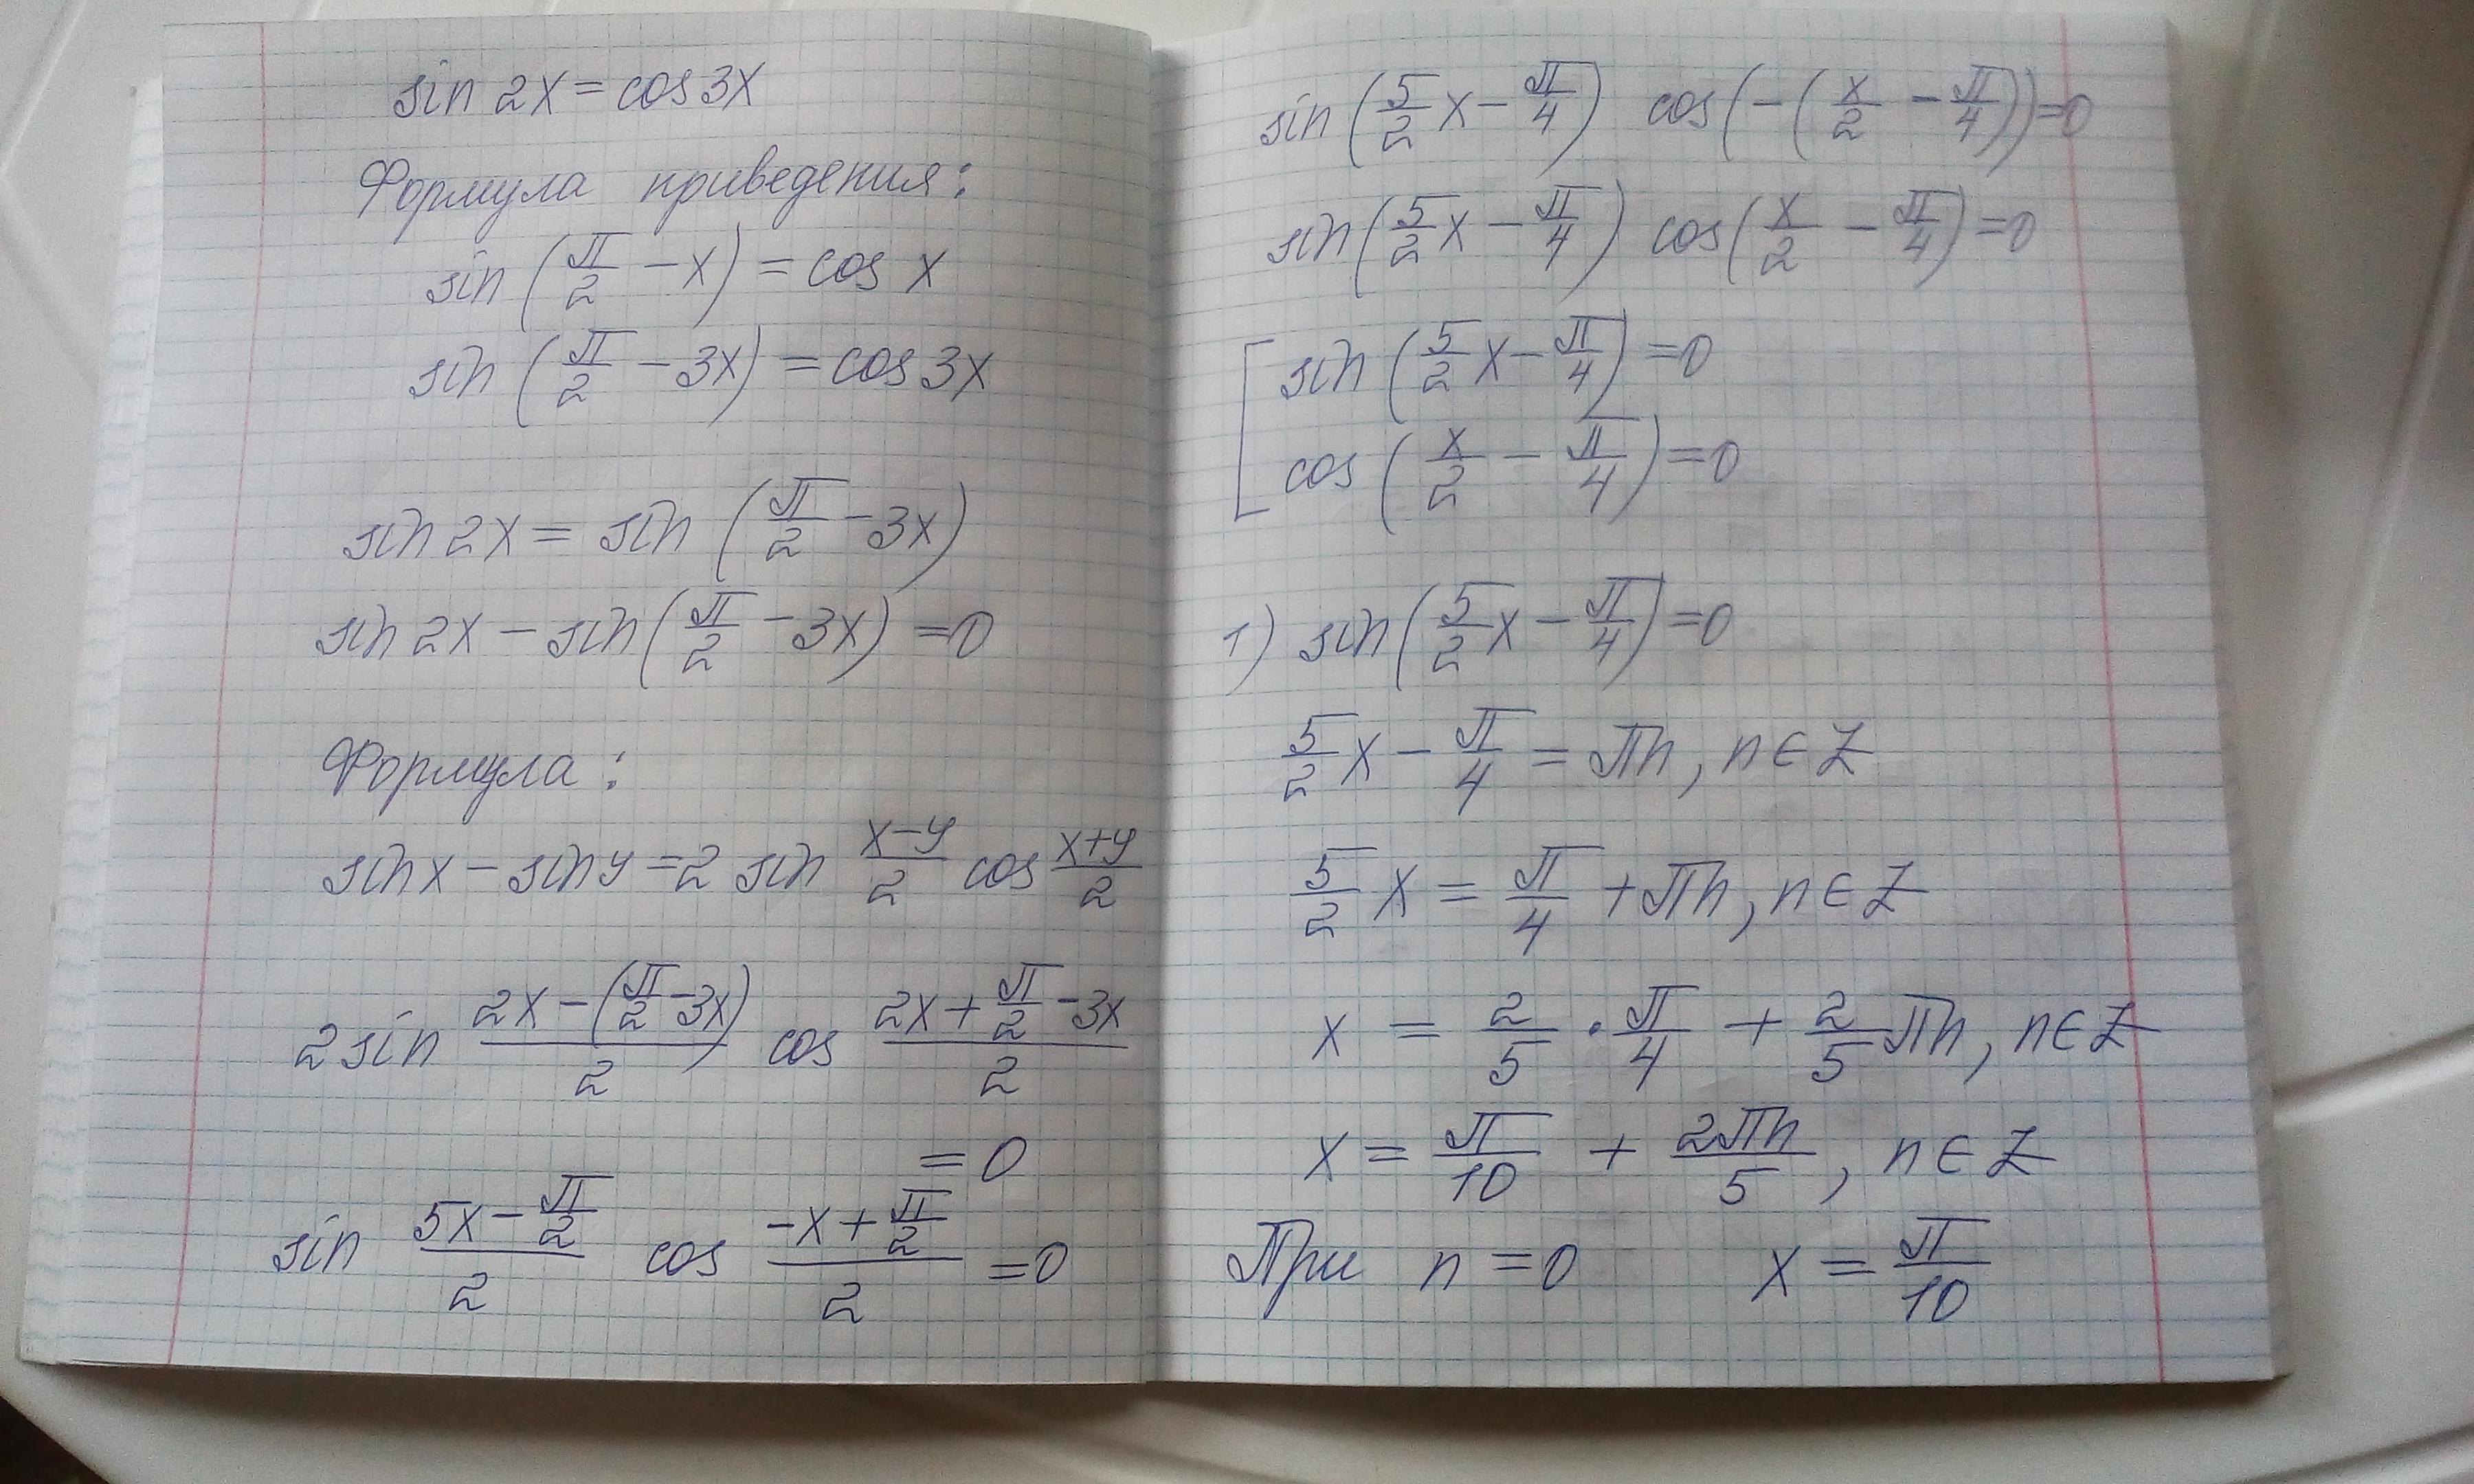 sin 2x = cos 3x
Формула приведения:
sin (π/2 − x) = cos x
sin (π/2 − 3x) = cos 3x
sin 2x = sin (π/2 − 3x)
sin 2x − sin (π/2 − 3x) = 0
Формула:
sin x − sin y = 2 sin (x−y)/2 cos (x+y)/2
2 sin (2x − (π/2 − 3x))/2 cos (2x + π/2 − 3x)/2
= 0
sin (5x − π/2)/2 cos (−x + π/2)/2 = 0
sin (5/2 x − π/4) cos (−(x/2 − π/4)) = 0
sin (5/2 x − π/4) cos (x/2 − π/4) = 0
[ sin (5/2 x − π/4) = 0
cos (x/2 − π/4) = 0
1) sin (5/2 x − π/4) = 0
5/2 x − π/4 = πn, n ∈ Z
5/2 x = π/4 + πn, n ∈ Z
x = 2/5 · π/4 + 2/5 πn, n ∈ Z
x = π/10 + 2πn/5, n ∈ Z
При n = 0 x = π/10